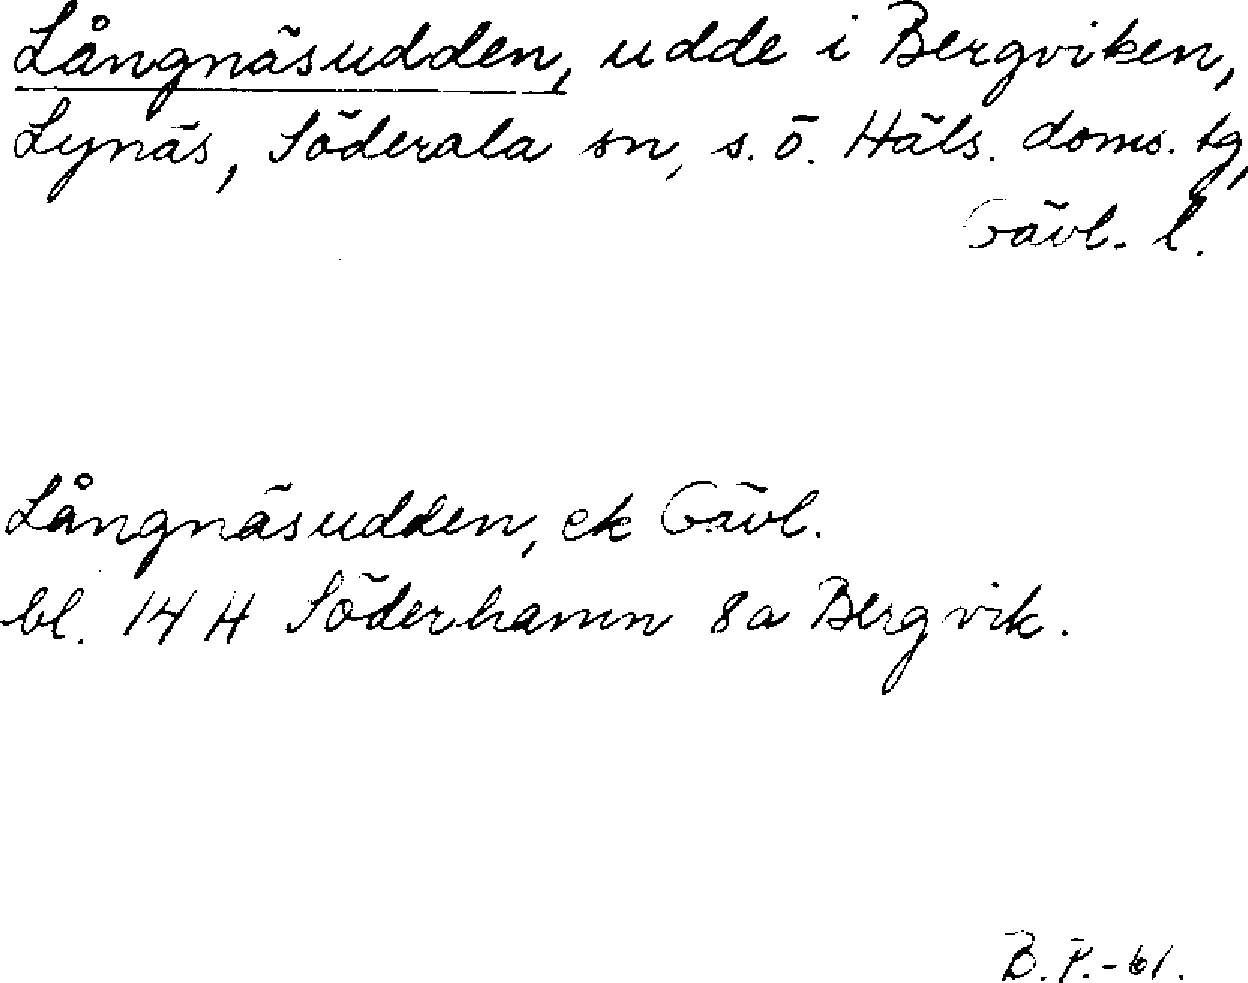 Långnäsudden, udde i Bergviken,
Lynäs, Söderala sn, s. ö. Häls. doms. tg,
Gävl. l.
Långnäsudden, ek Gävl.
bl. 14 H Söderhamn 8a Bergvik.
B. P. -61.